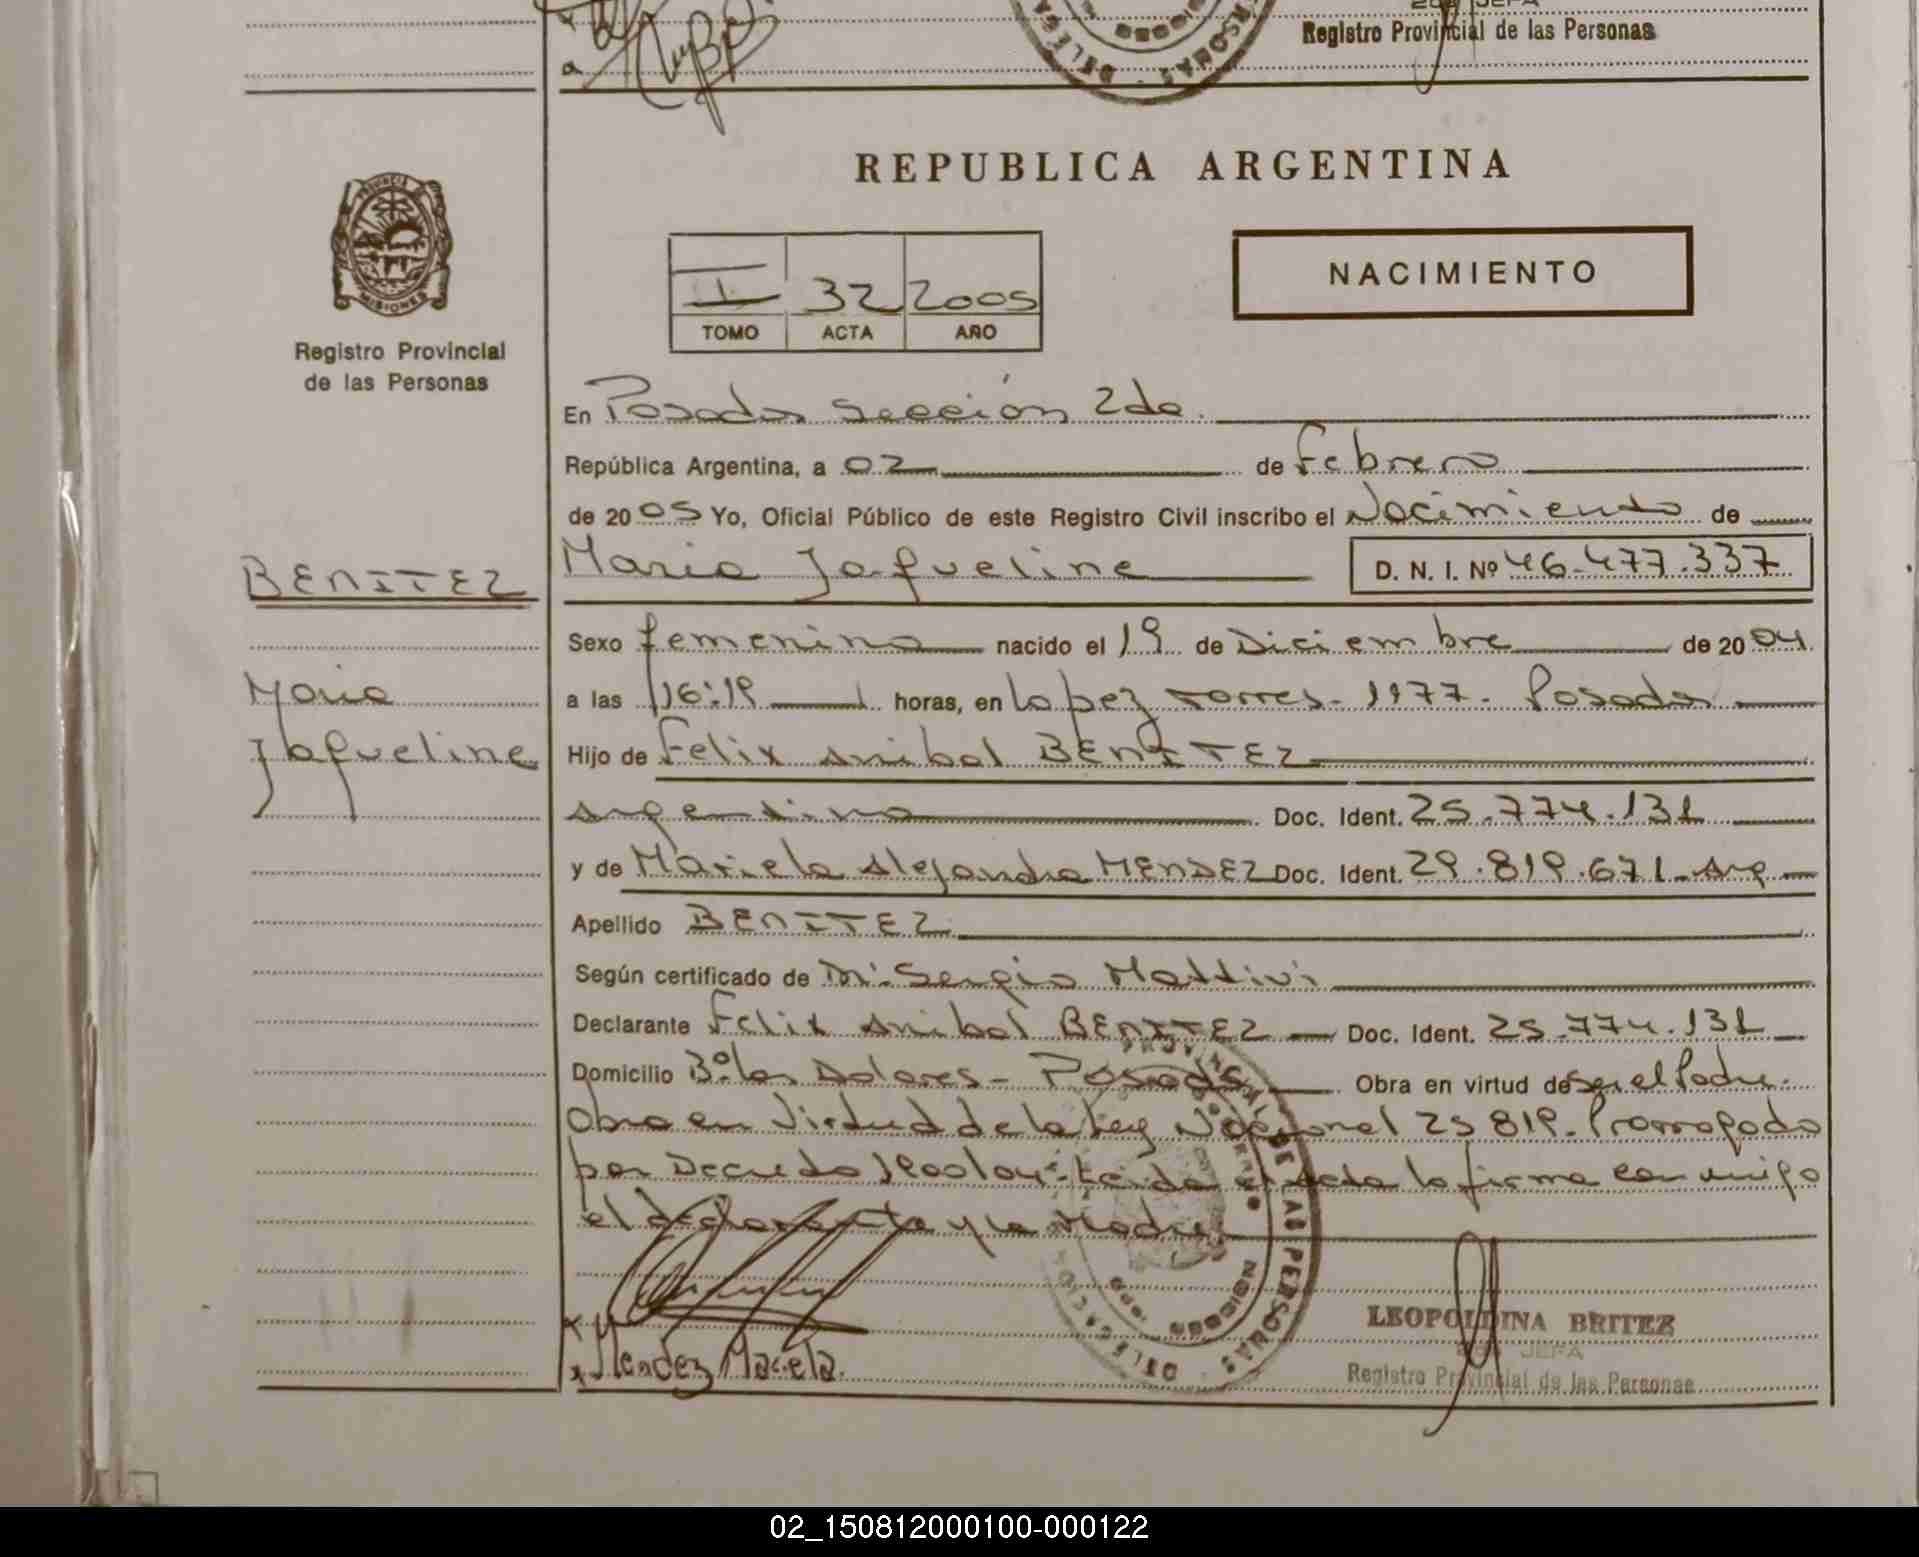 2da JEFA
Registro Provincial de las Personas
REPUBLICA ARGENTINA
PROVINCIA DE
MISIONES
Registro Provincial
de las Personas
I 32 2005
TOMO ACTA AÑO
NACIMIENTO
En Posadas Sección 2da.
República Argentina, a 02 de Febrero
de 2005 Yo, Oficial Público de este Registro Civil inscribo el Nacimiento de
BENITEZ
Maria Jaqueline D. N. I. Nº 46.477.337
Sexo femenino nacido el 19 de Diciembre de 2004
Maria
Jaqueline
a las 16:19 horas, en Lopez Torres - 1177 - Posadas
Hijo de Felix Anibal BENITEZ
argentino Doc. Ident. 25.774.131
y de Mariela Alejandra MENDEZ Doc. Ident. 29.819.671 - arg
Apellido BENITEZ
Según certificado de Dr. Sergio Mattivi
Declarante Felix Anibal BENITEZ Doc. Ident. 25.774.131
Domicilio Bº los Dolores - Posadas Obra en virtud de ser el Padre.
Obra en Virtud de la Ley Nacional 25819. Prorrogado
por Decreto 1200/04. Leida el acta la firma conmigo
el declarante y la Madre
x
x Mendez Mariela.
LEOPOLDINA BRITEZ
2da JEFA
Registro Provincial de las Personas
02_150812000100-000122